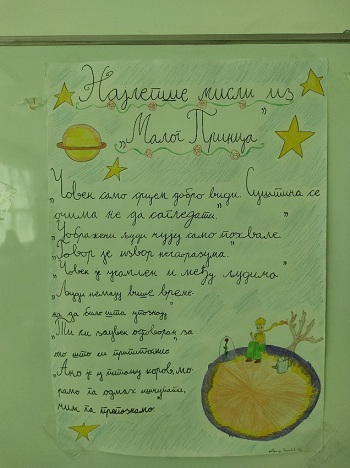 Најлепше мисли из
„Малог Принца“
„Човек само срцем добро види. Суштина се
очима не да сагледати.“
„Уображени људи чују само похвале.“
„Говор је извор неспоразума.“
„Човек је усамљен и међу људима“
„Људи немају више време-
на да било шта упознају“
„Ти си заувек одговоран за
оно што си припитомио“
„Ако је у питању коров, мо-
рамо га одмах ишчупати,
чим га препознамо“